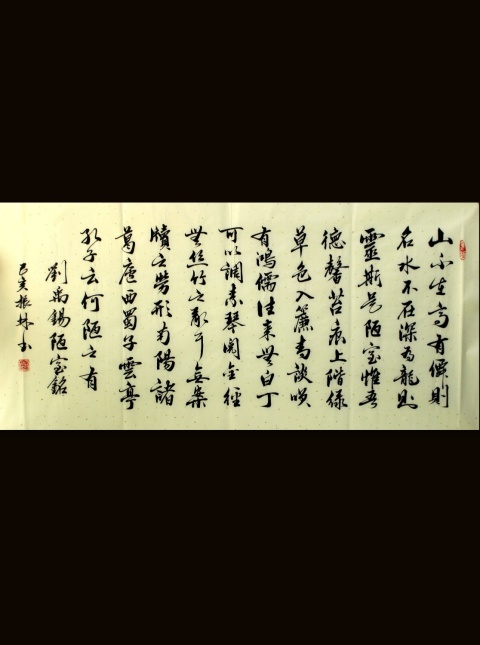 山不在高有僊則
名水不在深有龍則
靈斯是陋室惟吾
德馨苔痕上階綠
草色入簾青談咲
有鴻儒往來無白丁
可以調素琴閱金經
無丝竹之亂耳無案
牘之勞形南陽諸
葛廬西蜀子雲亭
孔子云何陋之有
劉禹錫陋室銘
己亥振林书